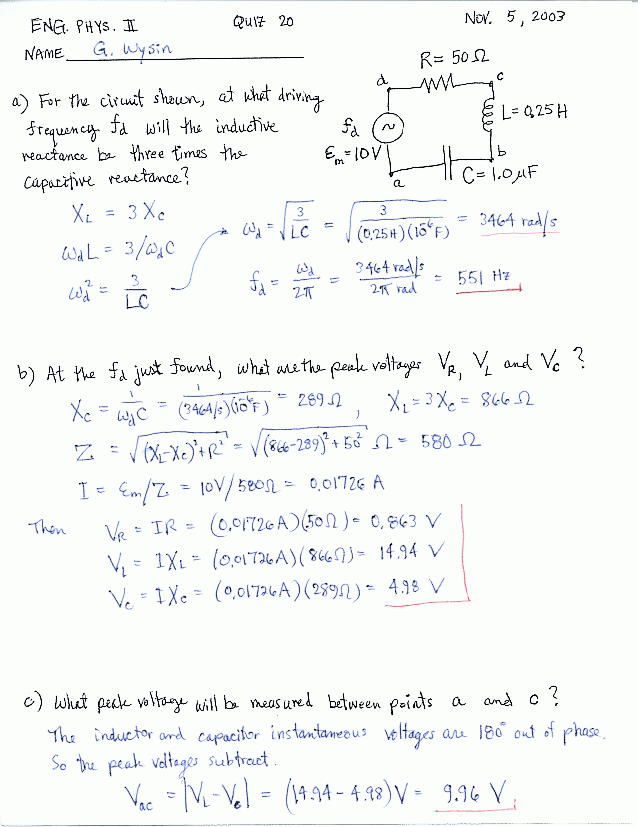 ENG. PHYS. II QUIZ 20 NOV. 5, 2003
NAME G. Wysin
a) For the circuit shown, at what driving
frequency fd will the inductive
reactance be three times the
capacitive reactance?
R = 50 Ω
d
c
fd
~
L = 0.25 H
Em = 10 V
b
a
C = 1.0 μF
XL = 3 Xc
ωd L = 3/ωd C
ωd² = 3/LC
ωd = √(3/LC) = √(3/((0.25H)(10⁻⁶F))) = 3464 rad/s
fd = ωd/2π = 3464 rad/s / 2π rad = 551 Hz
b) At the fd just found, what are the peak voltages VR, VL and Vc ?
Xc = 1/ωdC = 1/((3464/s)(10⁻⁶F)) = 289 Ω , XL = 3Xc = 866 Ω
Z = √((XL-Xc)²+R²) = √((866-289)²+50²) Ω = 580 Ω
I = Em/Z = 10V/580Ω = 0.01726 A
Then VR = IR = (0.01726A)(50Ω) = 0.863 V
VL = IXL = (0.01726A)(866Ω) = 14.94 V
Vc = IXc = (0.01726A)(289Ω) = 4.98 V
c) What peak voltage will be measured between points a and c ?
The inductor and capacitor instantaneous voltages are 180° out of phase.
So the peak voltages subtract.
Vac = |VL-Vc| = (14.94 - 4.98)V = 9.96 V.